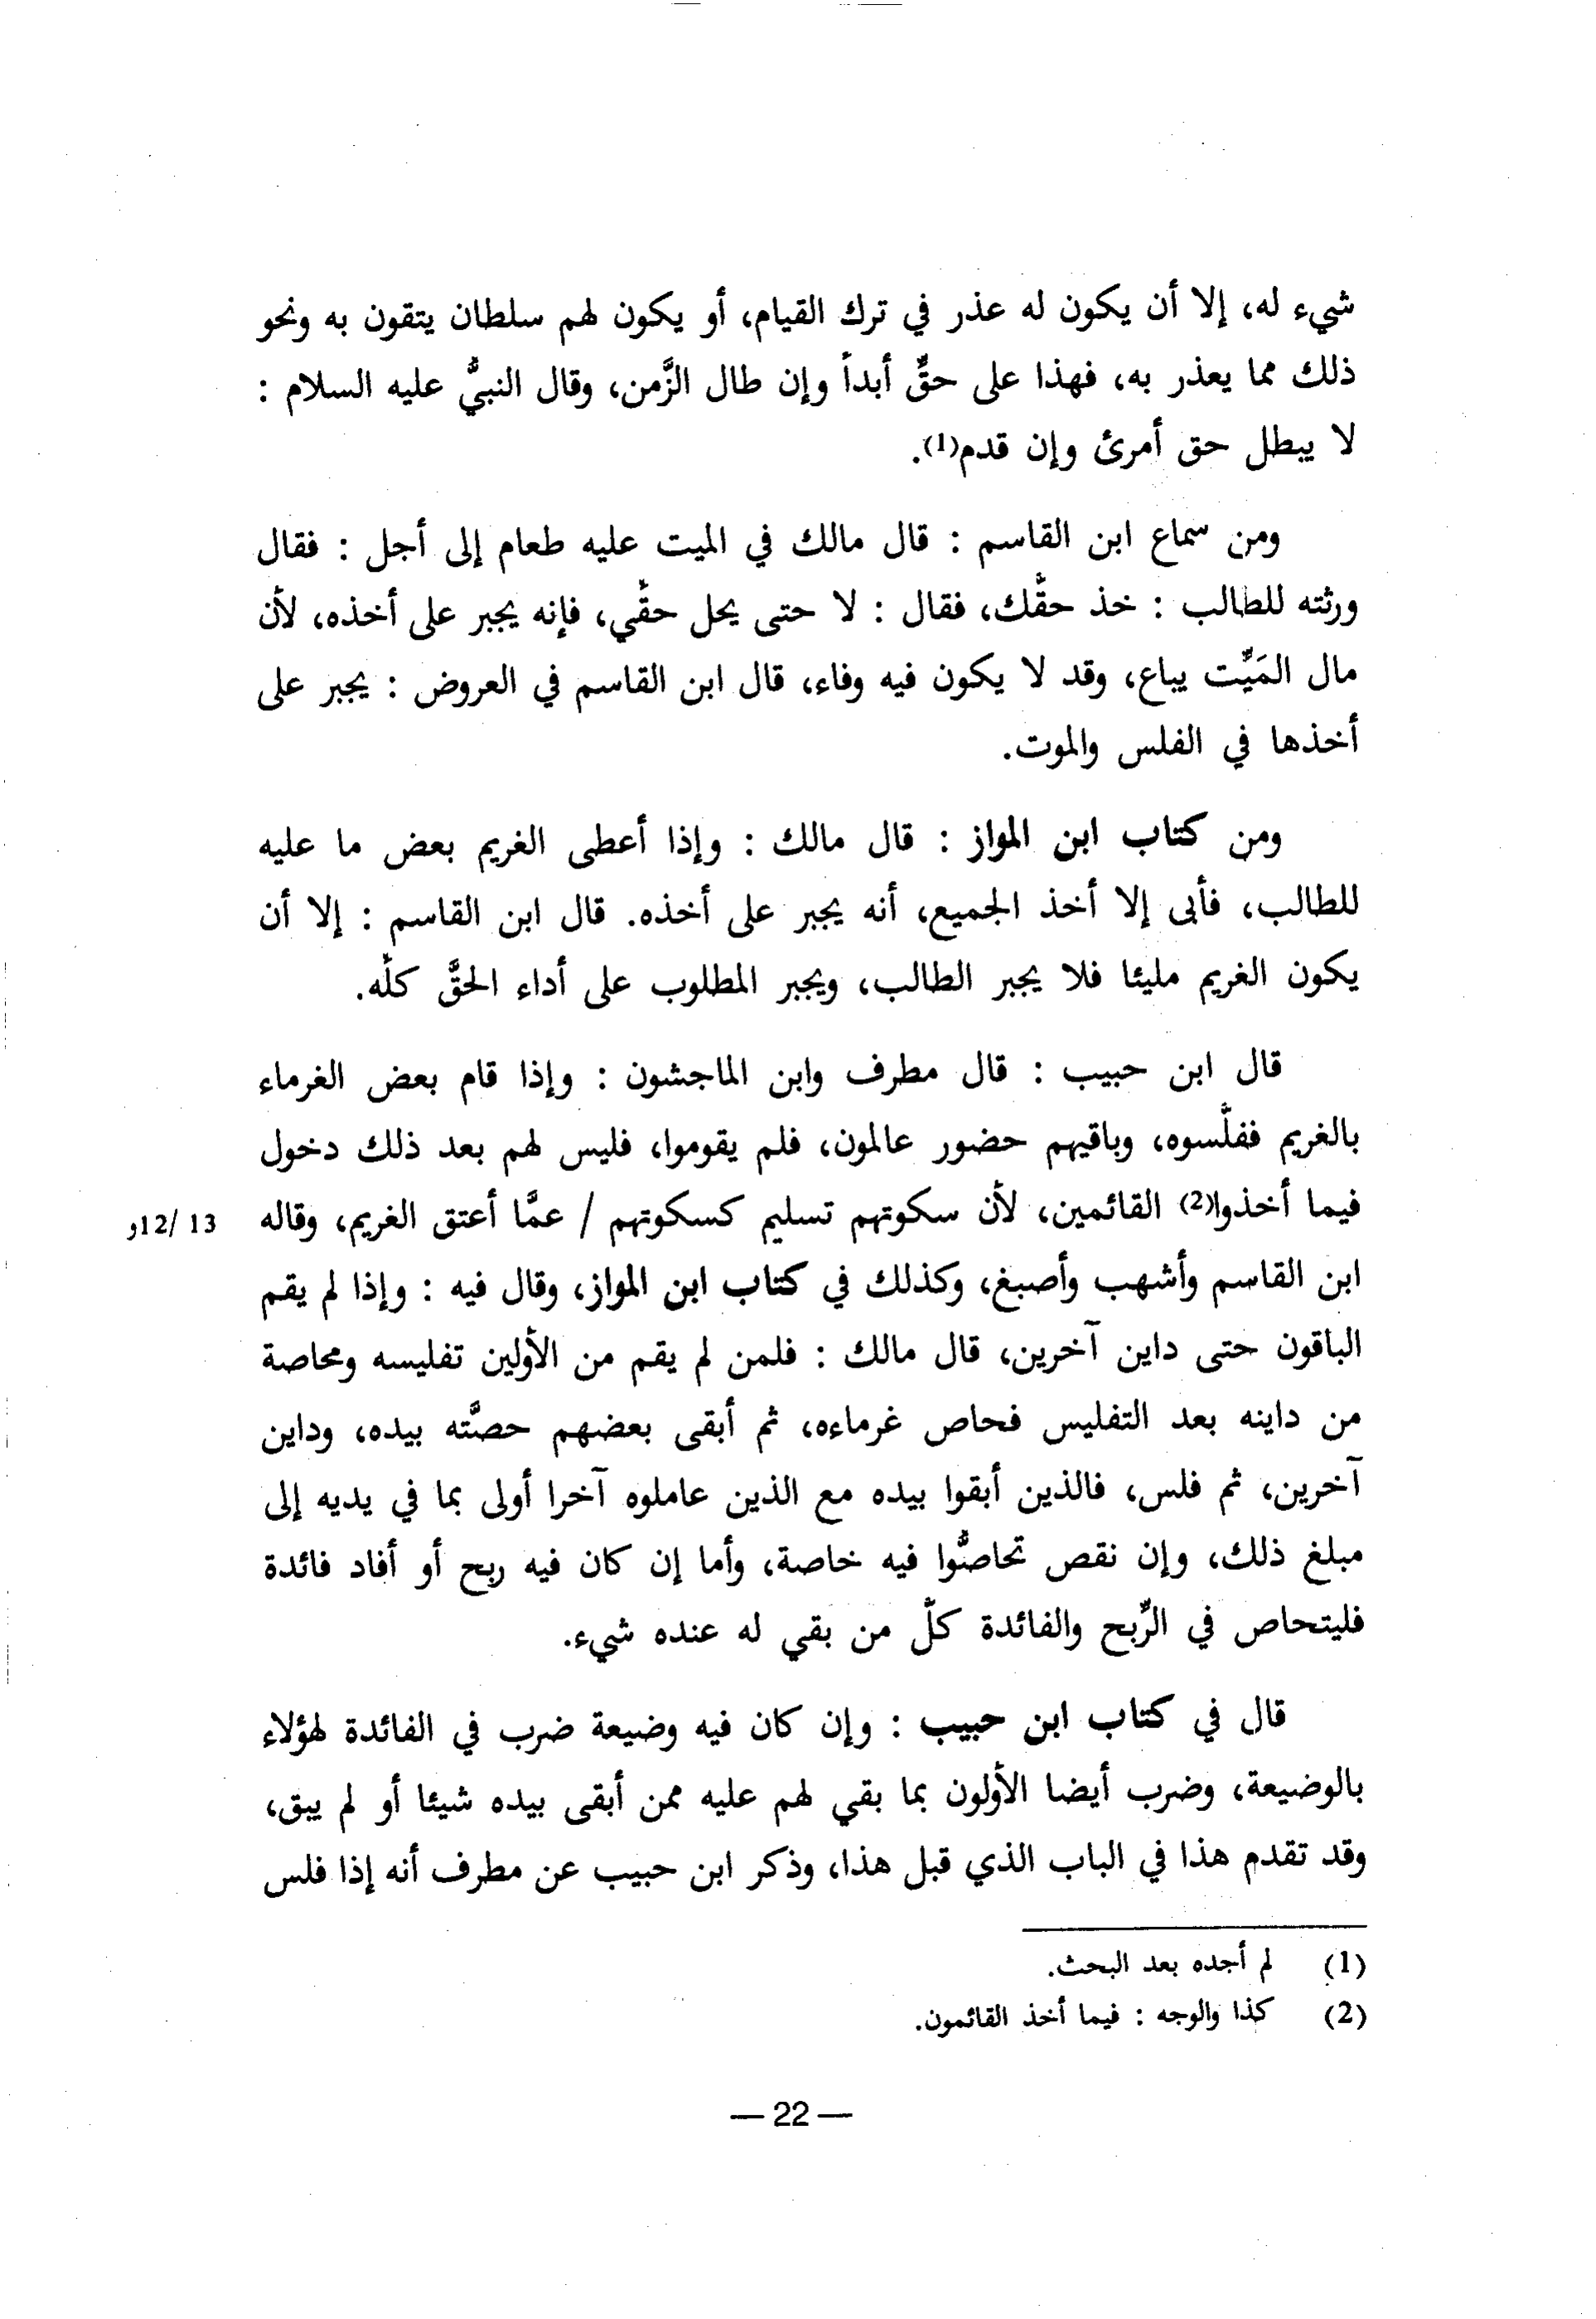 شيء له، إلا أن يكون له عذر في ترك القيام، أو يكون لهم سلطان يتقون به ونحو
ذلك مما يعذر به، فهذا على حقٍّ أبداً وإن طال الزَّمن، وقال النبيُّ عليه السلام :
لا يبطل حق أمرئ وإن قدم(1).
ومن سماع ابن القاسم : قال مالك في الميت عليه طعام إلى أجل : فقال
ورثته للطالب : خذ حقَّك، فقال : لا حتى يحل حقِّي، فإنه يجبر على أخذه، لأن
مال المَيِّت يباع، وقد لا يكون فيه وفاء، قال ابن القاسم في العروض : يجبر على
أخذها في الفلس والموت.
ومن كتاب ابن المواز : قال مالك : وإذا أعطى الغريم بعض ما عليه
للطالب، فأبى إلا أخذ الجميع، أنه يجبر على أخذه. قال ابن القاسم : إلا أن
يكون الغريم مليئا فلا يجبر الطالب، ويجبر المطلوب على أداء الحقَّ كلَّه.
قال ابن حبيب : قال مطرف وابن الماجشون : وإذا قام بعض الغرماء
بالغريم ففلَّسوه، وباقيهم حضور عالمون، فلم يقوموا، فليس لهم بعد ذلك دخول
فيما أخذوا(2) القائمين، لأن سكوتهم تسليم كسكوتهم / عمَّا أعتق الغريم، وقاله 13 /12و
ابن القاسم وأشهب وأصبغ، وكذلك في كتاب ابن المواز، وقال فيه : وإذا لم يقم
الباقون حتى داين آخرين، قال مالك : فلمن لم يقم من الأولين تفليسه ومحاصة
من داينه بعد التفليس فحاص غرماءه، ثم أبقى بعضهم حصَّته بيده، وداين
آخرين، ثم فلس، فالذين أبقوا بيده مع الذين عاملوه آخرا أولى بما في يديه إلى
مبلغ ذلك، وإن نقص تحاصُّوا فيه خاصة، وأما إن كان فيه ربح أو أفاد فائدة
فليتحاص في الرِّبح والفائدة كلّ من بقي له عنده شيء.
قال في كتاب ابن حبيب : وإن كان فيه وضيعة ضرب في الفائدة لهؤلاء
بالوضيعة، وضرب أيضا الأولون بما بقي لهم عليه ممن أبقى بيده شيئا أو لم يبق،
وقد تقدم هذا في الباب الذي قبل هذا، وذكر ابن حبيب عن مطرف أنه إذا فلس
(1) لم أجده بعد البحث.
(2) كذا والوجه : فيما أخذ القائمون.
— 22 —